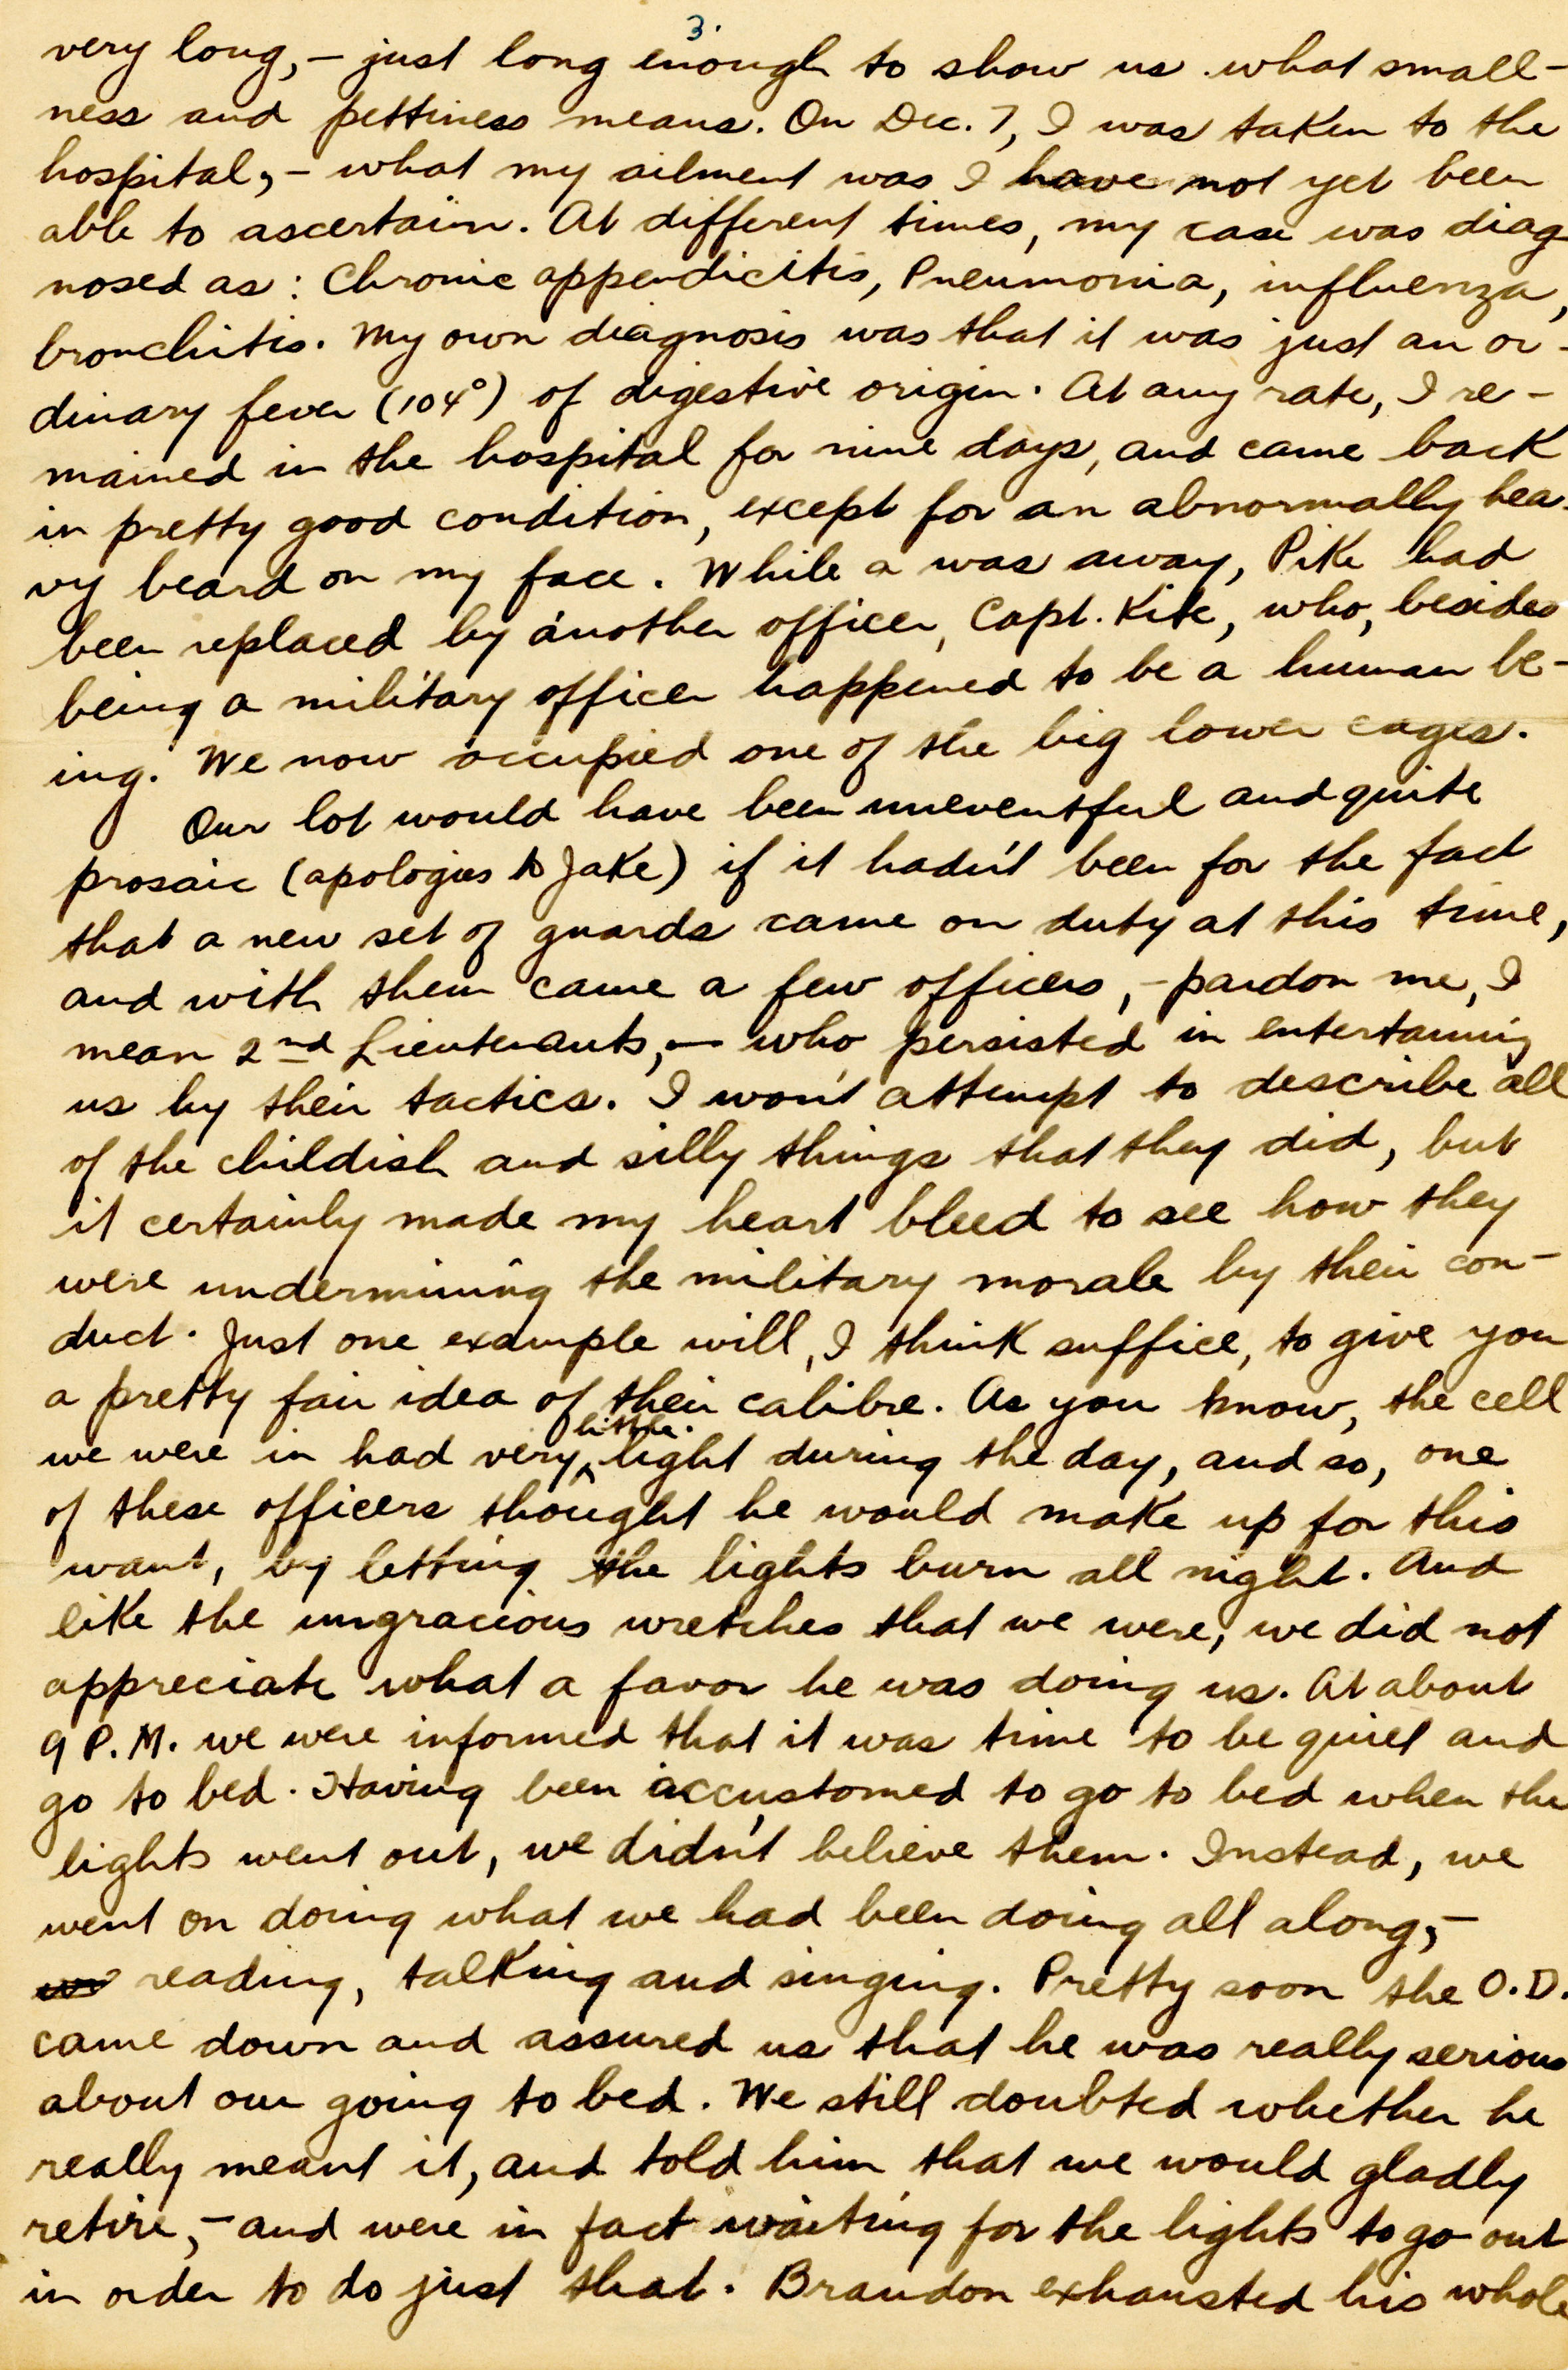 3.
very long, – just long enough to show us what small-
ness and pettiness means. On Dec. 7, I was taken to the
hospital, – what my ailment was I have not yet been
able to ascertain. At different times, my case was diag
nosed as: Chronic appendicitis, Pneumonia, influenza,
bronchitis. My own diagnosis was that it was just an or-
dinary fever (104°) of digestive origin. At any rate, I re-
mained in the hospital for nine days, and came back
in pretty good condition, except for an abnormally hea-
vy beard on my face. While a was away, Pike had
been replaced by another officer, Capt. Kite, who, besides
being a military officer happened to be a human be-
ing. We now occupied one of the big lower cages.
Our lot would have been uneventful and quite
prosaic (apologies to Jake) if it hadn't been for the fact
that a new set of guards came on duty at this time,
and with them came a few officers, – pardon me, I
mean 2nd Lieutenants, – who persisted in entertaining
us by their tactics. I won't attempt to describe all
of the childish and silly things that they did, but
it certainly made my heart bleed to see how they
were undermining the military morale by their con-
duct. Just one example will, I think suffice, to give you
a pretty fair idea of their calibre. As you know, the cell
we were in had very little light during the day, and so, one
of these officers thought he would make up for this
want, by letting the lights burn all night. And
like the ungracious wretches that we were, we did not
appreciate what a favor he was doing us. At about
9 P.M. we were informed that it was time to be quiet and
go to bed. Having been accustomed to go to bed when the
lights went out, we didn't believe them. Instead, we
went on doing what we had been doing all along, –
reading, talking and singing. Pretty soon the O.D.
came down and assured us that he was really serious
about our going to bed. We still doubted whether he
really meant it, and told him that we would gladly
retire, – and were in fact waiting for the lights to go out
in order to do just that. Brandon exhausted his whole